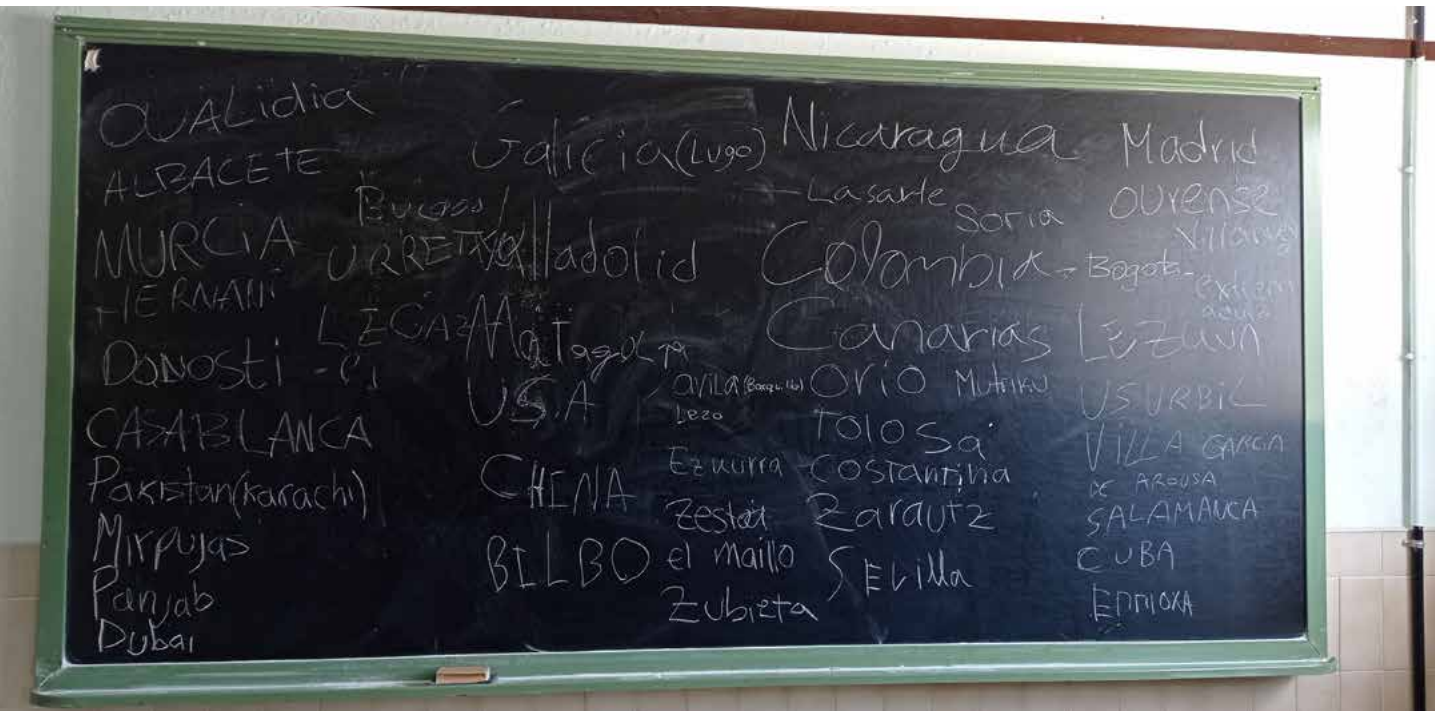 OUALidia
ALBACETE
MURCIA
HERNANI
DONOSTI
CASABLANCA
Pakistan(Karachi)
Mirpujas
Panjab
Dubai
Burgos
URRETXU
Galicia(Lugo)
Valladolid
Matagalpa
U.S.A
CHINA
BILBO
avila
Lezo
Ezkurra
Zestoa
el maillo
Zubieta
Nicaragua
Lasarte
Soria
Colombia - Bogota
Canarias
Orio Mutriku
Tolosa
Costantina
Zarautz
SEVilla
Madrid
Ourense
Lezaun
USURBIL
VILLA GARCIA
DE AROUSA
SALAMANCA
CUBA